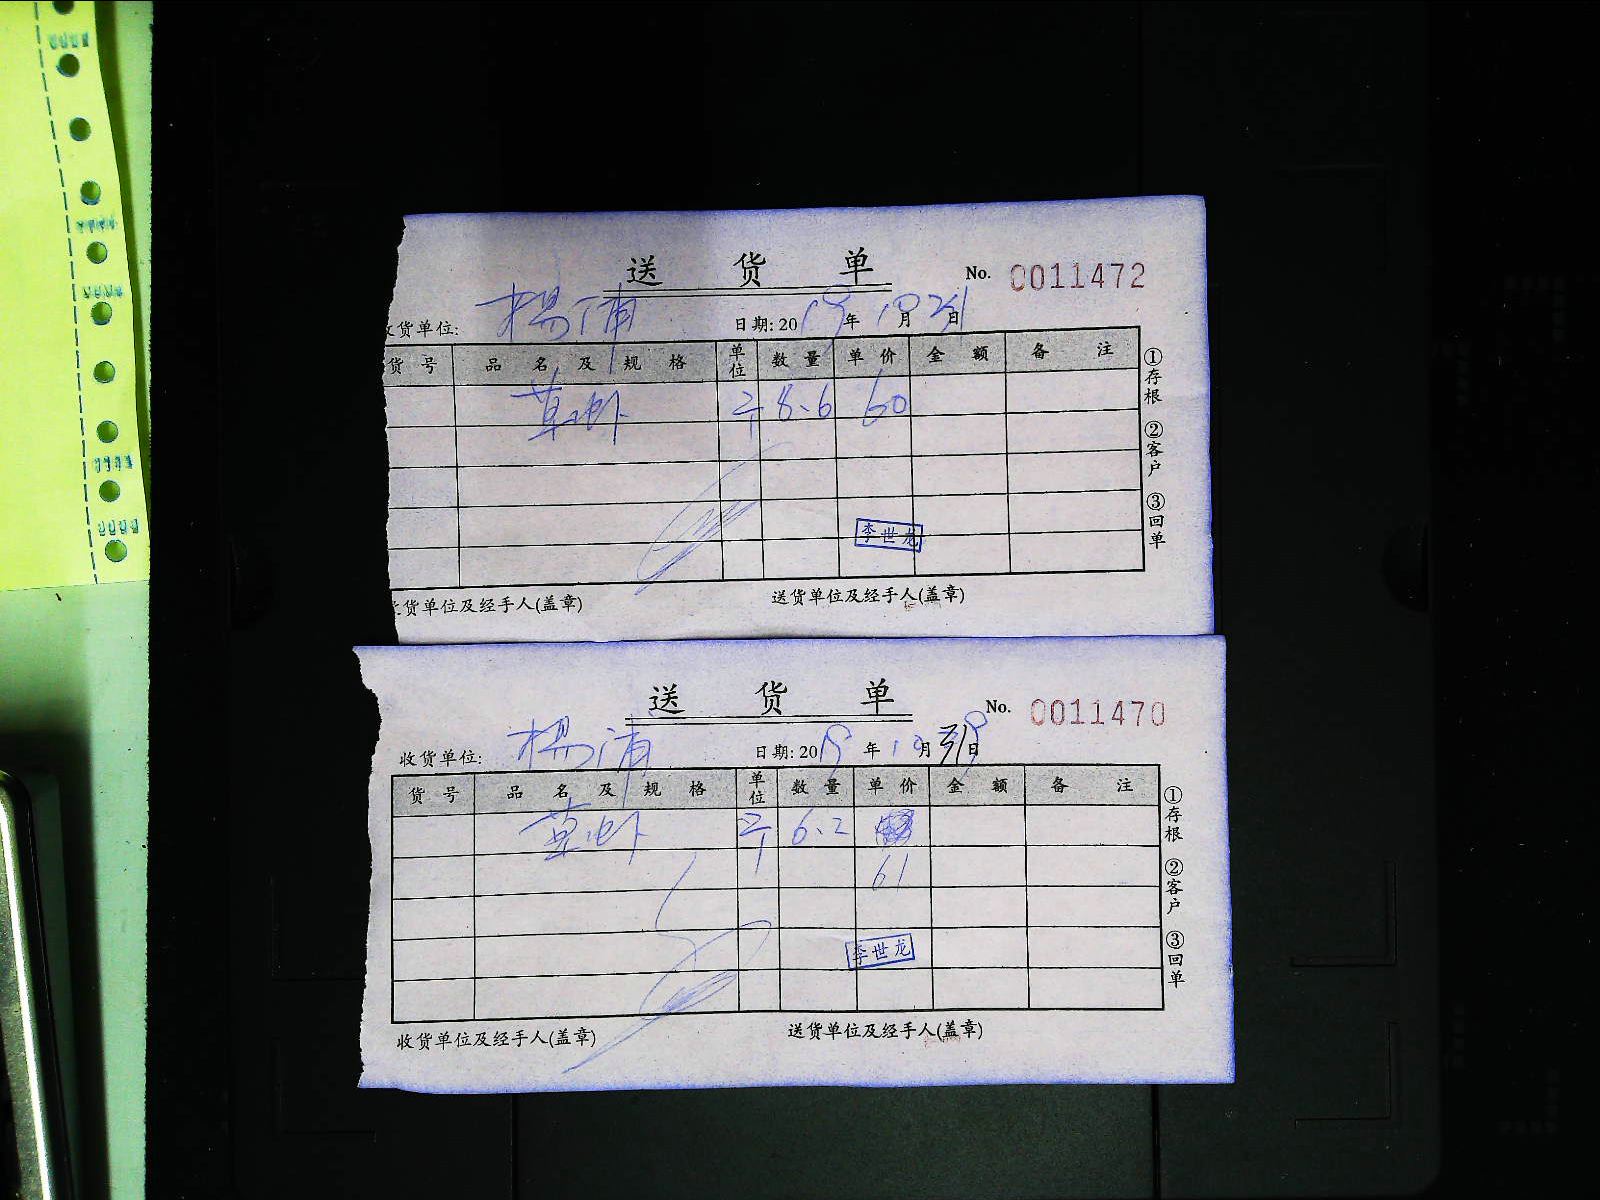 送 货 单 No. 0011472
收货单位: 杨浦 日期: 2019年10月21日
货号 品名及规格 单位 数量 单价 金额 备注
草虾 斤 8.6 60
李世龙
收货单位及经手人(盖章) 送货单位及经手人(盖章)
①存根 ②客户 ③回单
送 货 单 No. 0011470
收货单位: 杨浦 日期: 2019年10月日
货号 品名及规格 单位 数量 单价 金额 备注
草虾 斤 6.2
61
李世龙
收货单位及经手人(盖章) 送货单位及经手人(盖章)
①存根 ②客户 ③回单